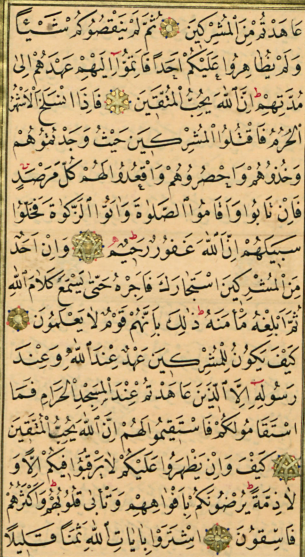 عَاهَدْتُمْ مِنَ الْمُشْرِكِينَ ثُمَّ لَمْ يَنْقُصُوكُمْ شَيْئًا
وَلَمْ يُظَاهِرُوا عَلَيْكُمْ اَحَدًا فَاَتِمُّوٓا اِلَيْهِمْ عَهْدَهُمْ اِلٰى
مُدَّتِهِمْ اِنَّ اللّٰهَ يُحِبُّ الْمُتَّقِينَ فَاِذَا انْسَلَخَ الْاَشْهُرُ
الْحُرُمُ فَاقْتُلُوا الْمُشْرِكِينَ حَيْثُ وَجَدْتُمُوهُمْ
وَخُذُوهُمْ وَاحْصُرُوهُمْ وَاقْعُدُوا لَهُمْ كُلَّ مَرْصَدٍ
فَاِنْ تَابُوا وَاَقَامُوا الصَّلٰوةَ وَاٰتَوُا الزَّكٰوةَ فَخَلُّوا
سَبِيلَهُمْ اِنَّ اللّٰهَ غَفُورٌ رَحِيمٌ وَاِنْ اَحَدٌ
مِنَ الْمُشْرِكِينَ اسْتَجَارَكَ فَاَجِرْهُ حَتّٰى يَسْمَعَ كَلَامَ اللّٰهِ
ثُمَّ اَبْلِغْهُ مَاْمَنَهُ ذٰلِكَ بِاَنَّهُمْ قَوْمٌ لَا يَعْلَمُونَ
كَيْفَ يَكُونُ لِلْمُشْرِكِينَ عَهْدٌ عِنْدَ اللّٰهِ وَعِنْدَ
رَسُولِهٓ اِلَّا الَّذِينَ عَاهَدْتُمْ عِنْدَ الْمَسْجِدِ الْحَرَامِ فَمَا
اسْتَقَامُوا لَكُمْ فَاسْتَقِيمُوا لَهُمْ اِنَّ اللّٰهَ يُحِبُّ الْمُتَّقِينَ
كَيْفَ وَاِنْ يَظْهَرُوا عَلَيْكُمْ لَا يَرْقُبُوا فِيكُمْ اِلًّا وَ
لَا ذِمَّةً يُرْضُونَكُمْ بِاَفْوَاهِهِمْ وَتَاْبٰى قُلُوبُهُمْ وَاَكْثَرُهُمْ
فَاسِقُونَ اِشْتَرَوْا بِاٰيَاتِ اللّٰهِ ثَمَنًا قَلِيلًا